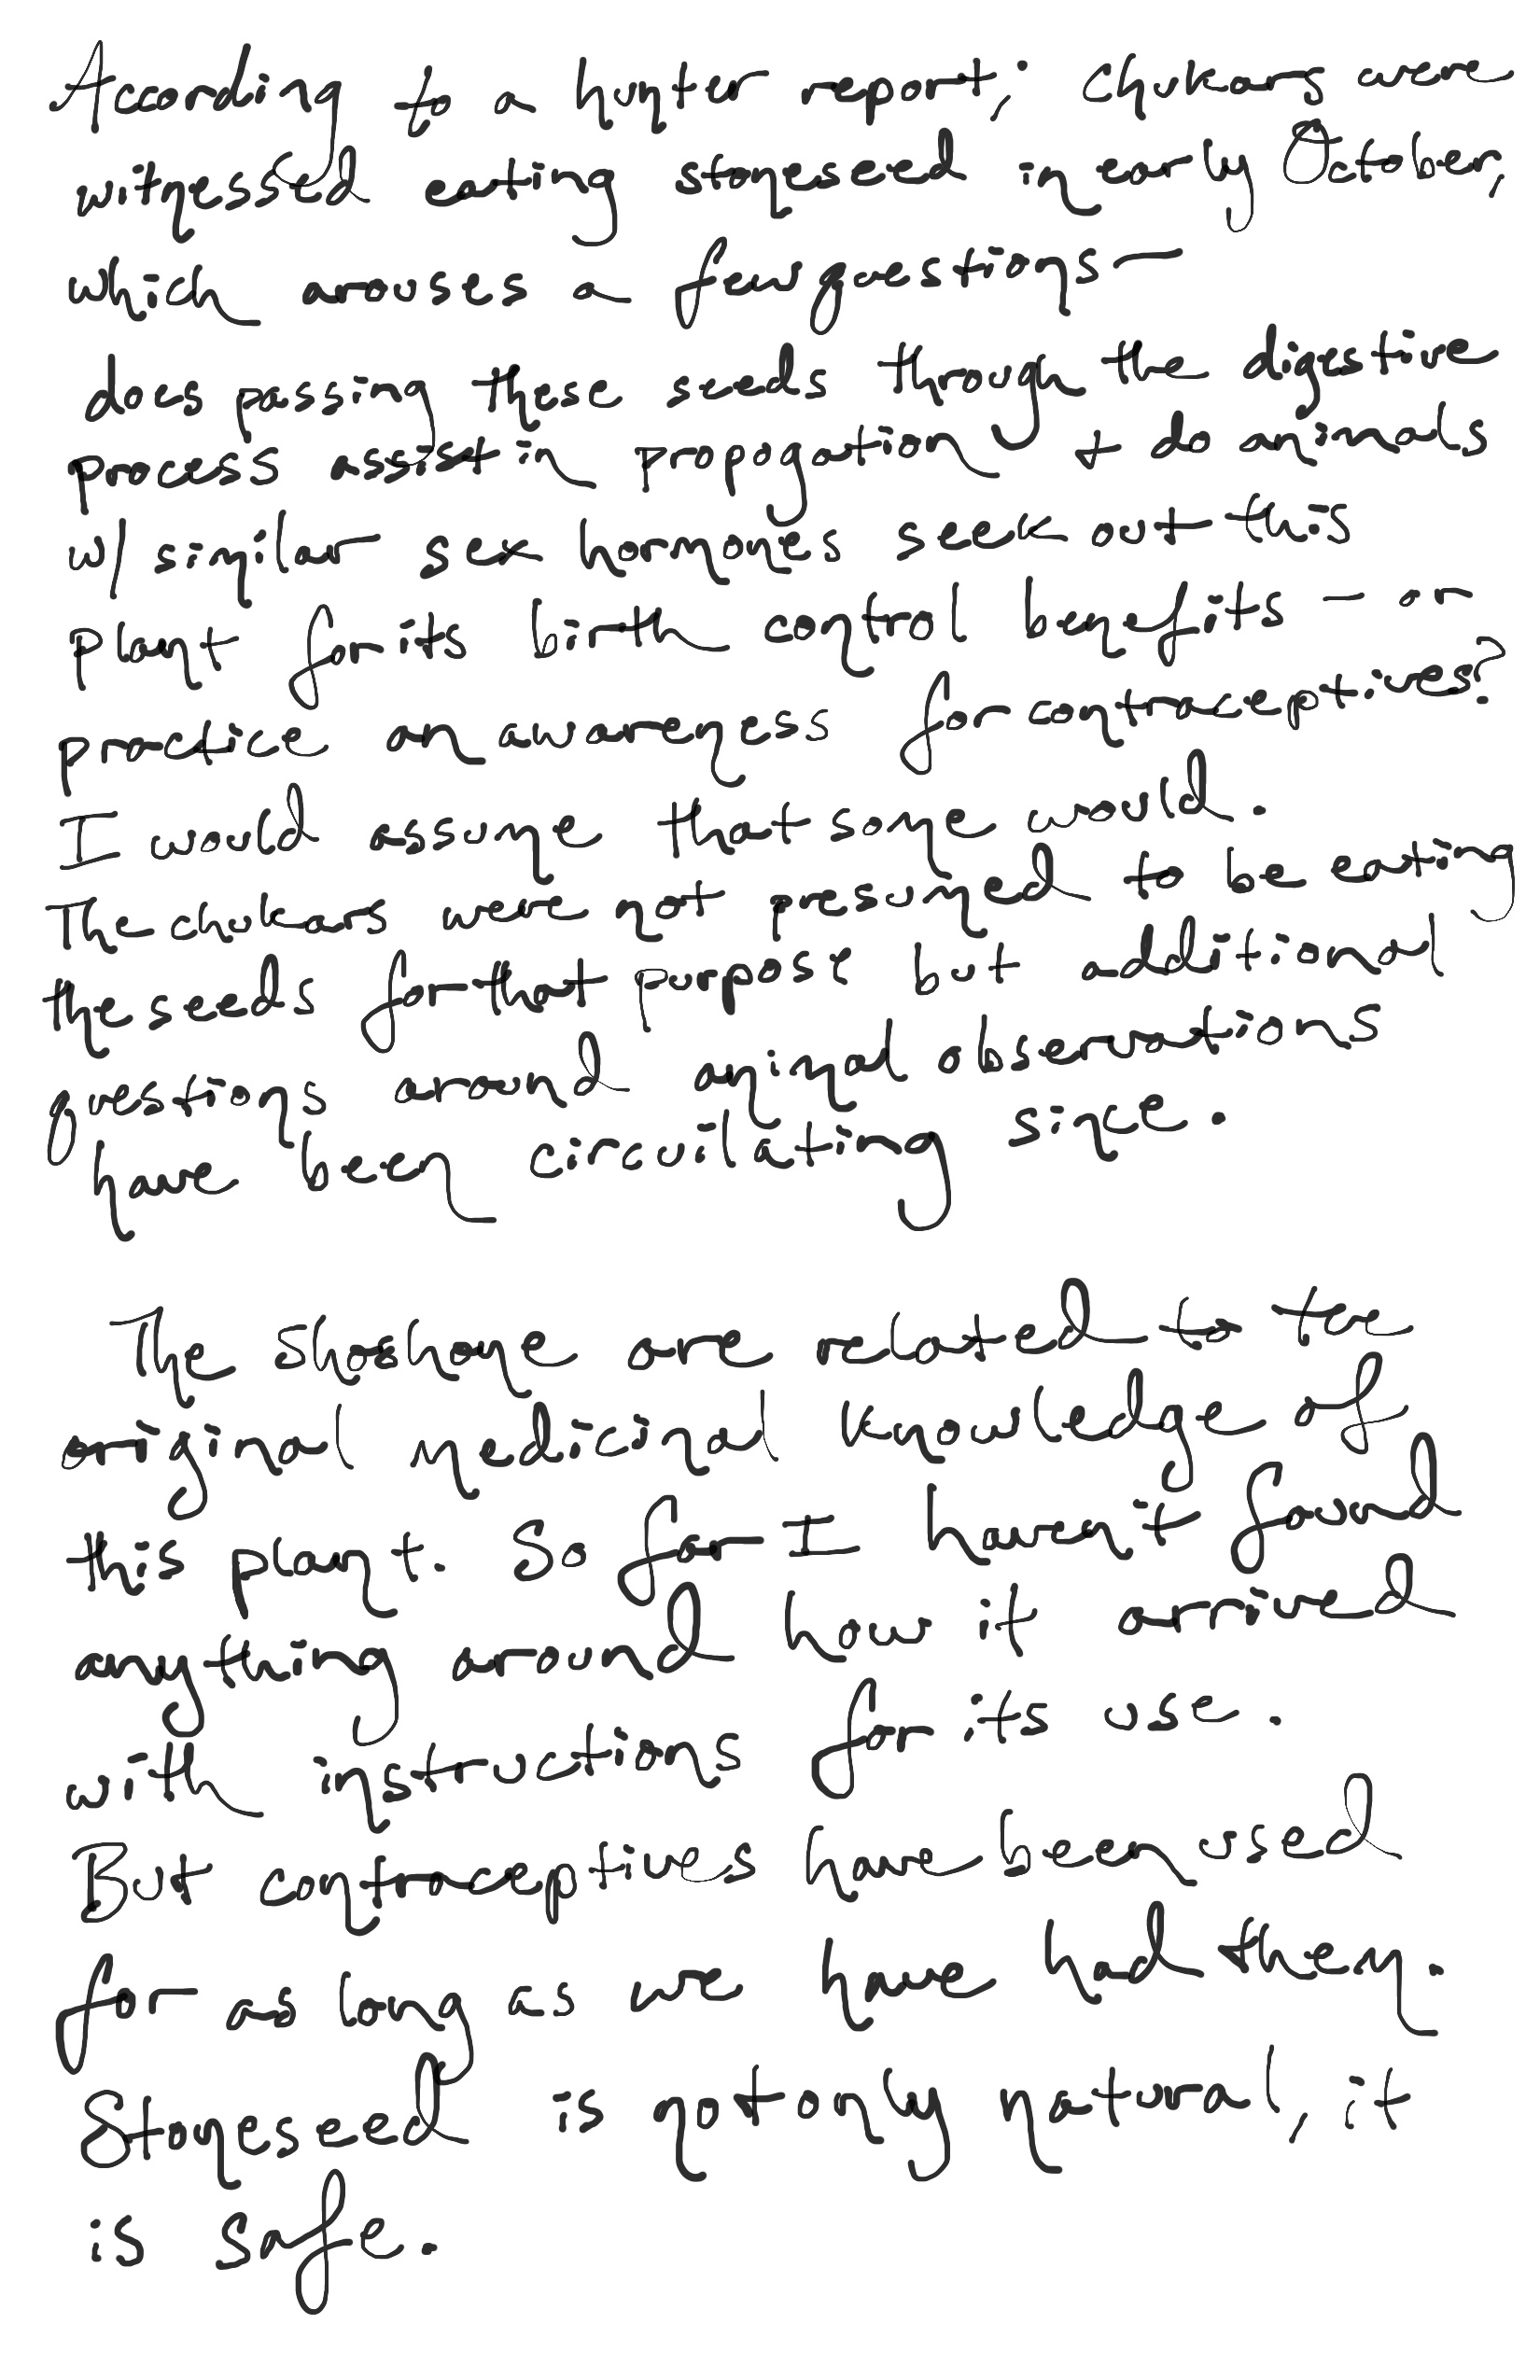 According to a hunter report; chukars were
witnessed eating stoneseed in early October,
which arouses a few questions—
does passing these seeds through the digestive
process assist in propogation + do animals
w/ similar sex hormones seek out this
plant for its birth control benefits - or
practice an awareness for contraceptives?
I would assume that some would.
The chukars were not presumed to be eating
the seeds for that purpose but additional
questions around animal observations
have been circuilating since.
The Shoshone are related to tee
original medicinal knowledge of
this plant. So far I haven't found
anything around how it arrived
with instructions for its use.
But contraceptives have been used
for as long as we have had them.
Stoneseed is not only natural, it
is safe.